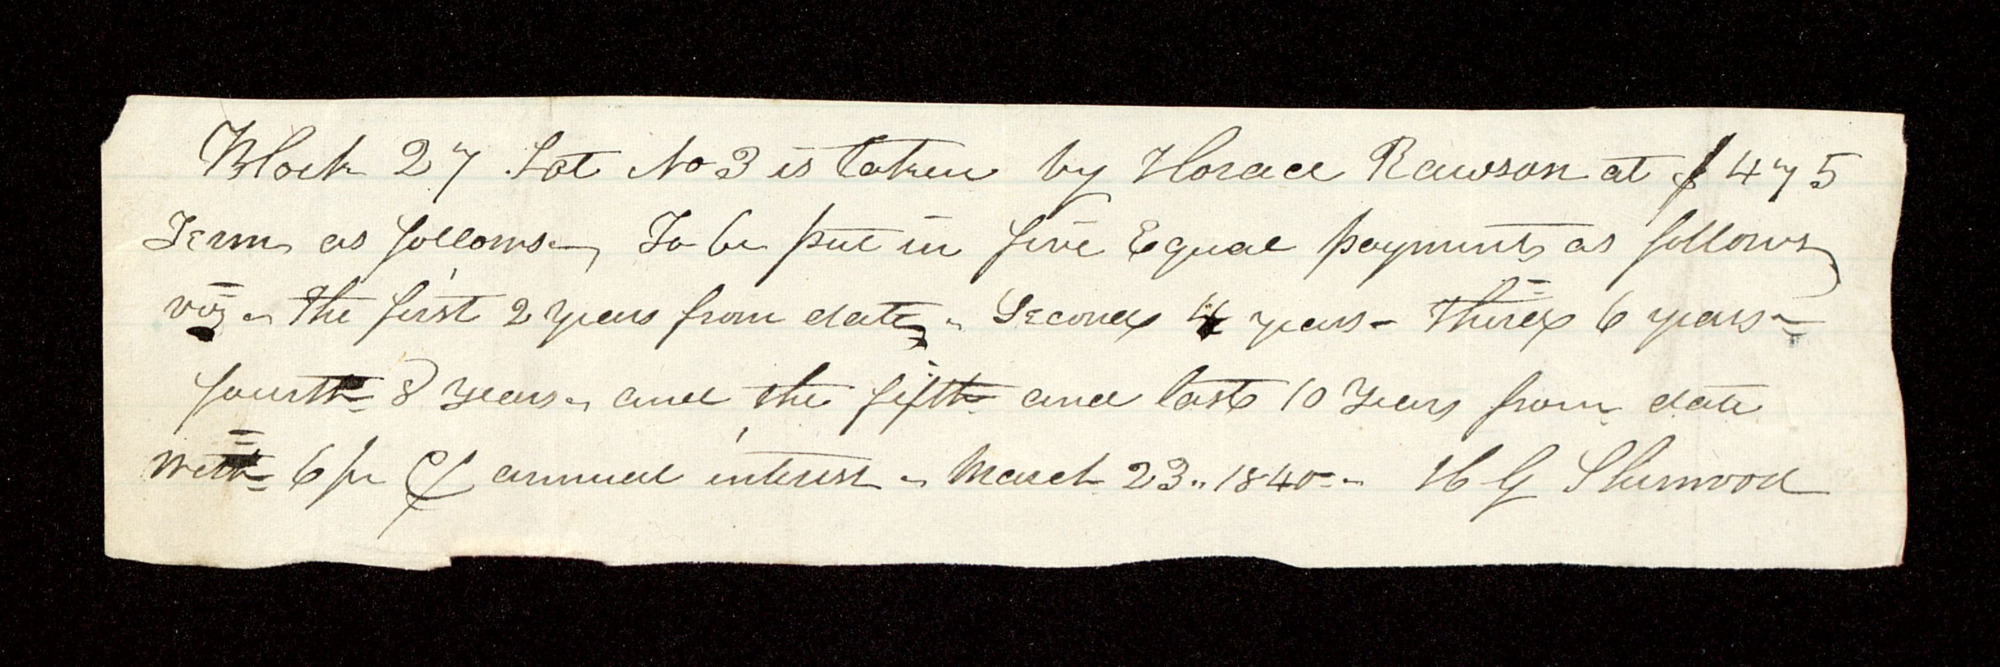 Block 27 Lot No 3 is taken by Horace Rawson at $475
Terms as follows—, To be put in five Equal payments as follows
viz - the first 2 years from date - Second 4 years - Third 6 years -
fourth 8 years - and the fifth and last 10 Years from date
with 6 pr Ct annual interest - March 23.. 1840 - H G Sherwood